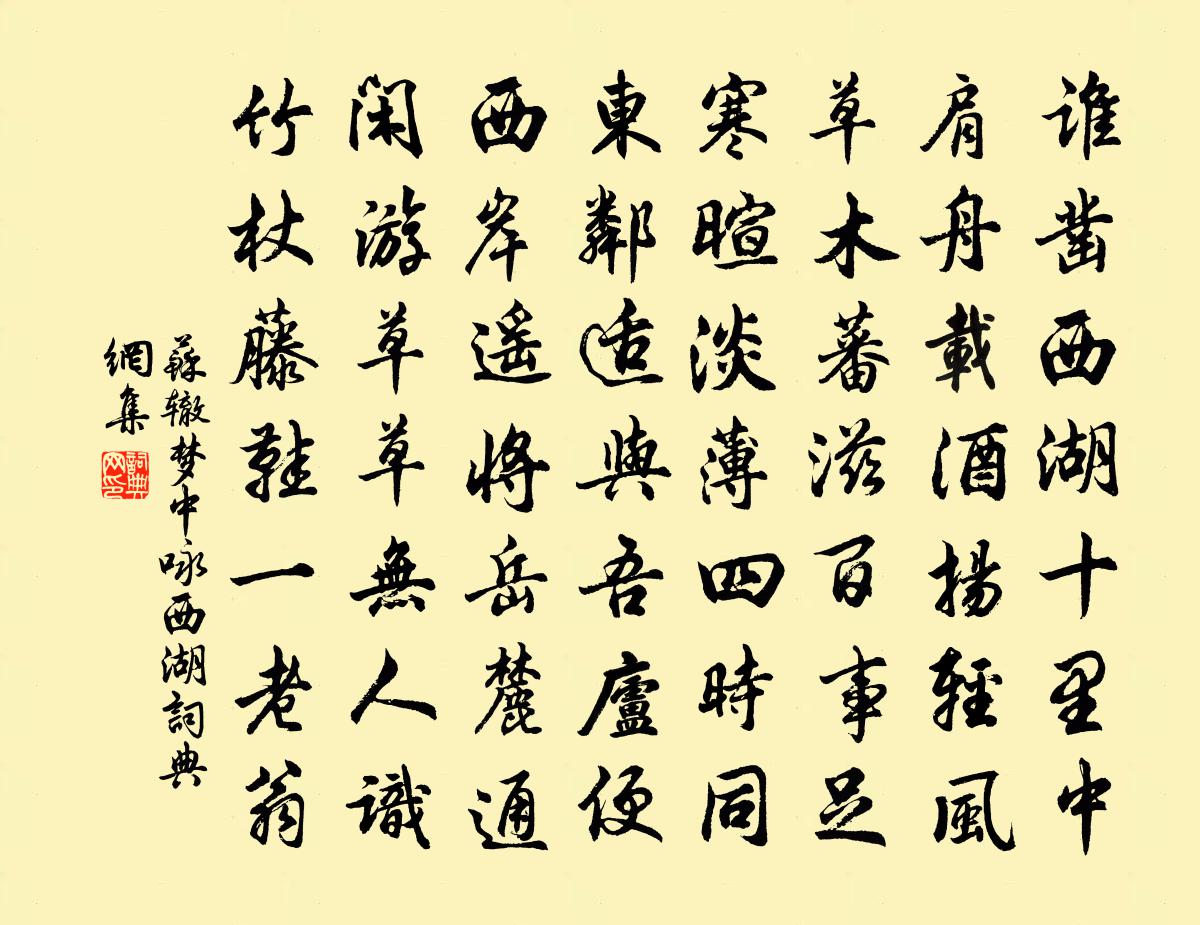 谁凿西湖十里中
肩舟載酒揚輕風
草木蕃滋百事足
寒暄淡薄四時同
東鄰适與吾廬便
西岸遥將岳麓通
闲游草草無人識
竹杖藤鞋一老翁
蘇辙梦中咏西湖詞典
網集
詞典
网印